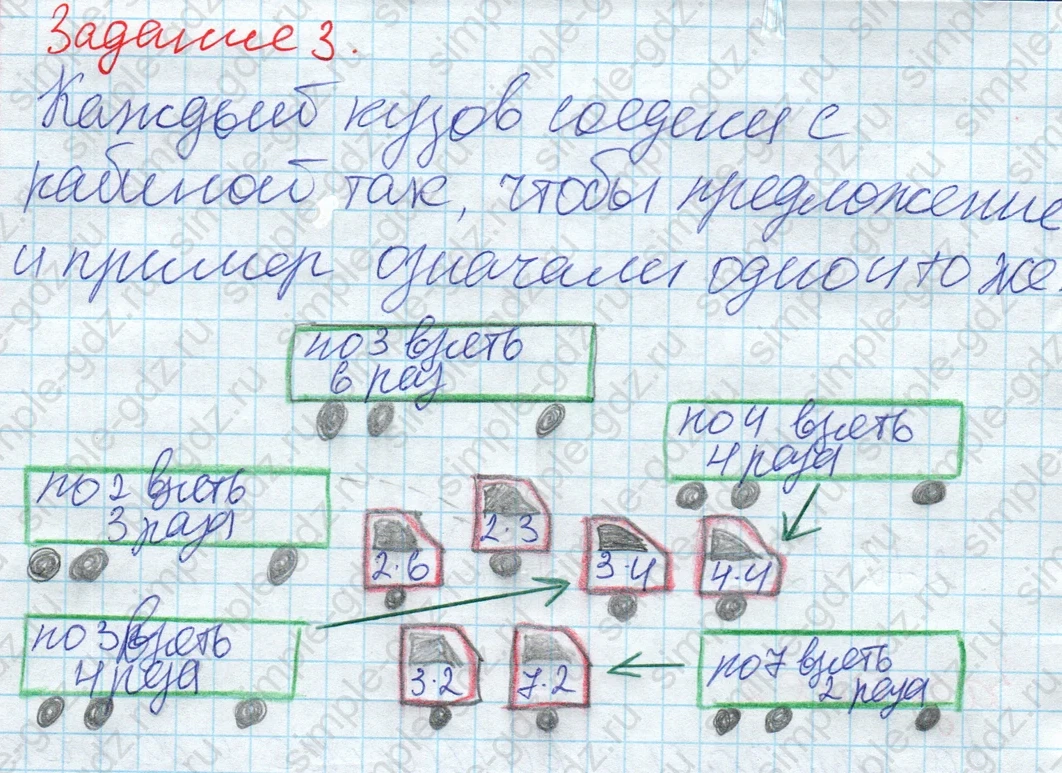 Задание 3.
Каждый кузов соедени с
кабиной так, чтобы предложение
и пример означали одно и то же.
по 3 взять
6 раз
по 4 взять
4 раза
по 2 взять
3 раза
2·6
2·3
3·4
4·4
по 3 взять
4 раза
3·2
7·2
по 7 взять
2 раза
simple-gdz.ru